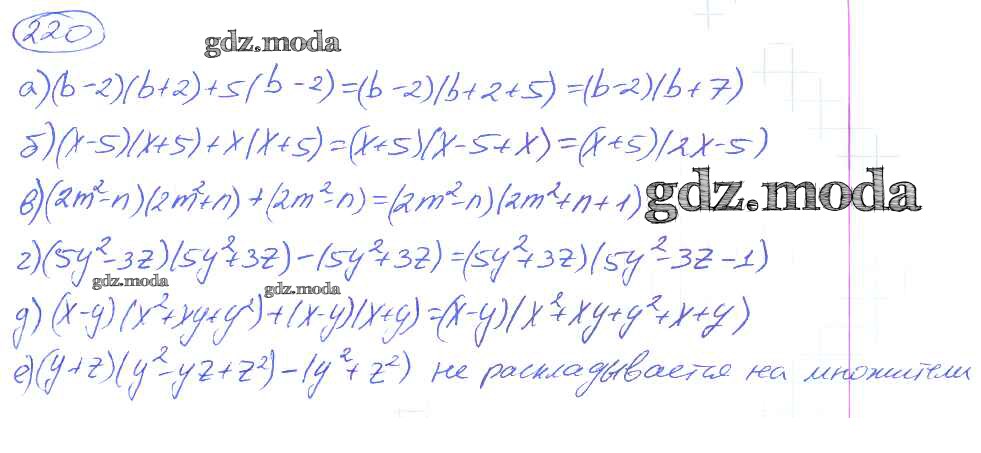 220
gdz.moda
а) (b-2)(b+2)+5(b-2)=(b-2)(b+2+5)=(b-2)(b+7)
б) (x-5)(x+5)+x(x+5)=(x+5)(x-5+x)=(x+5)(2x-5)
в) (2m²-n)(2m²+n)+(2m²-n)=(2m²-n)(2m²+n+1)
gdz.moda
г) (5y²-3z)(5y²+3z)-(5y²+3z)=(5y²+3z)(5y²-3z-1)
gdz.moda
gdz.moda
д) (x-y)(x²+xy+y²)+(x-y)(x+y)=(x-y)(x²+xy+y²+x+y)
е) (y+z)(y²-yz+z²)-(y²+z²) не раскладывается на множители